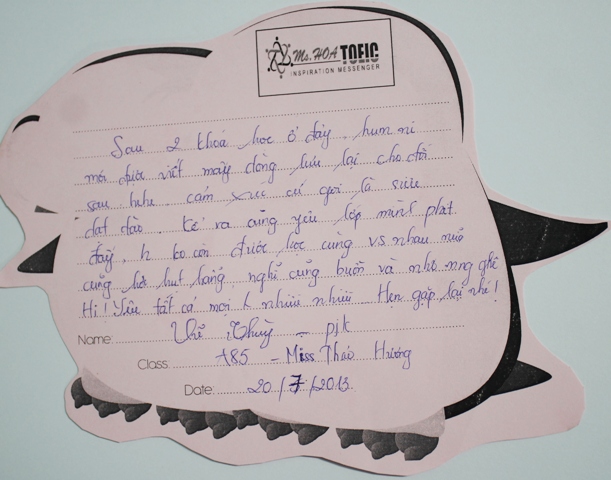 Ms. HOA TOEIC
INSPIRATION MESSENGER
Sau 2 khoá học ở đây, hum ni
mới được viết mấy dòng lưu lại cho đời
sau hehe cảm xúc cứ gọi là sướt
dạt dào. Kể ra cũng yêu lớp mình phết
đấy, h ko còn được học cùng vs nhau nữa
cũng hơi hụt hẫng, nghĩ cũng buồn và nhớ mng ghê
Hi! Yêu tất cả mọi k nhiiii nhiiii Hẹn gặp lại nhé!
Name: Thuỳ _ pjt
Class: A85 - Miss Thảo Hương
Date: 20/7/2013